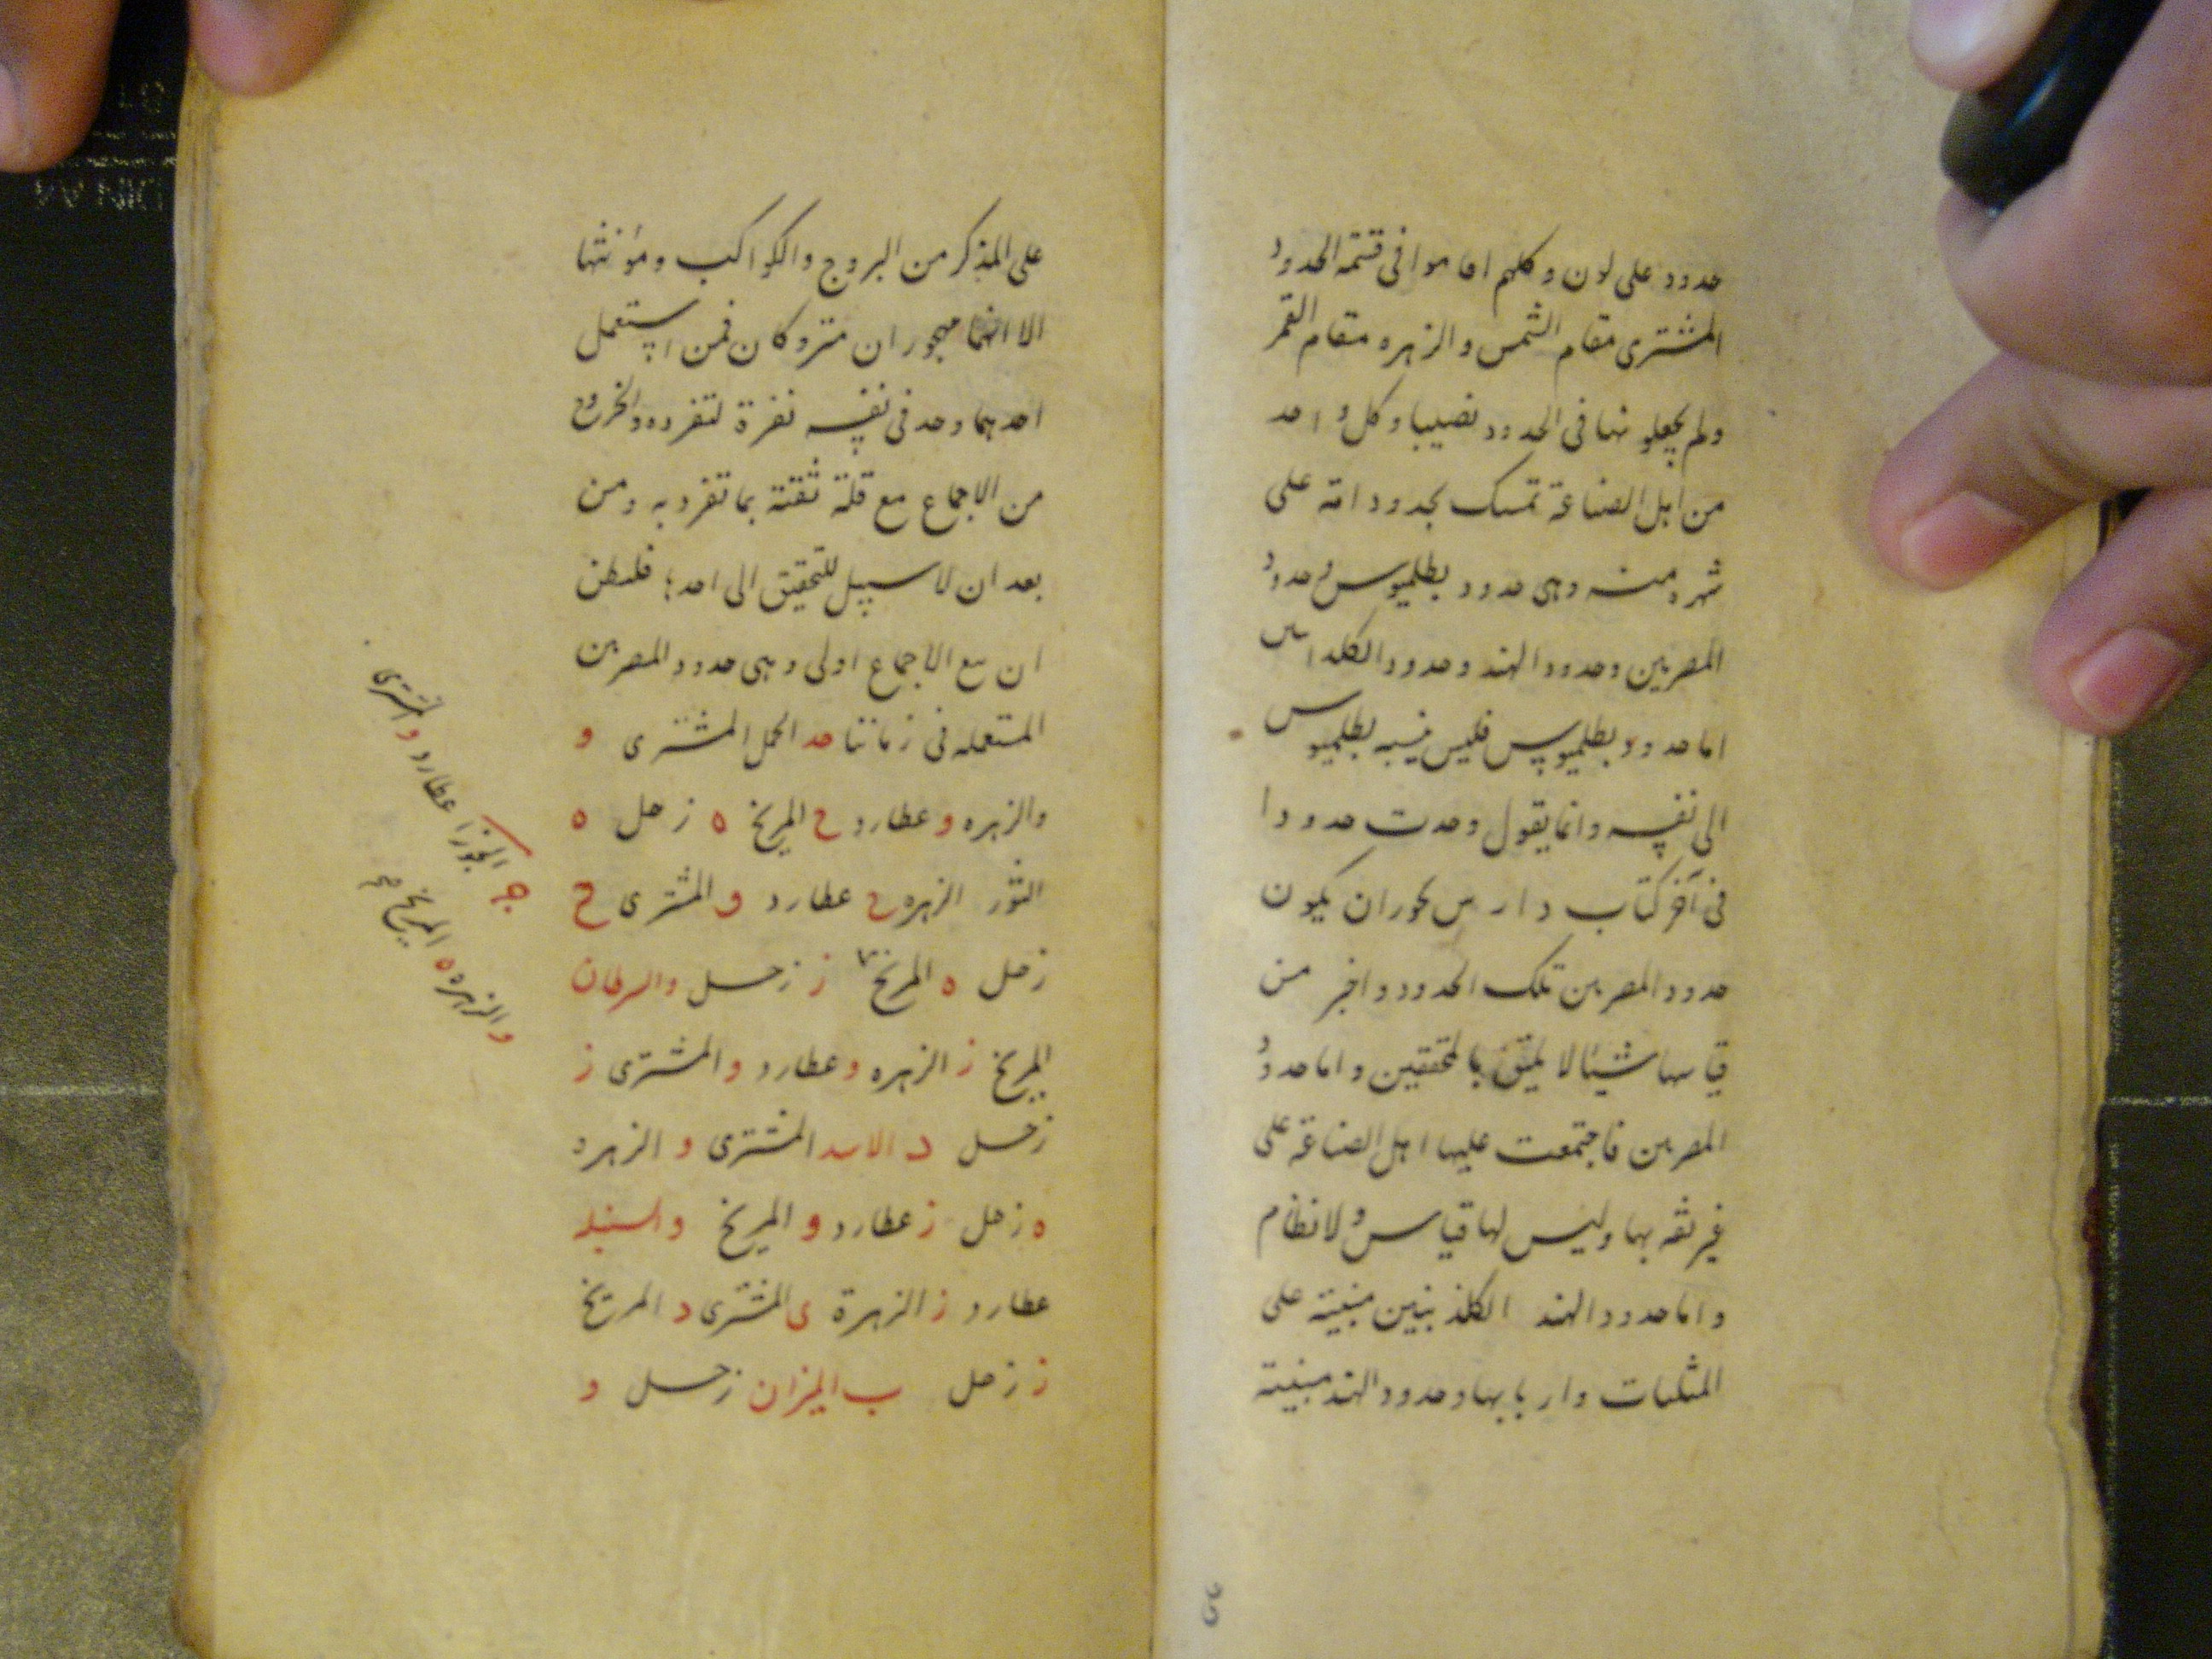 حدود على لون وكلهم اقاموا فى قسمة الحدود
المشترى مقام الشمس والزهره مقام القمر
ولم يجعلو نها فى الحدود نصيبا وكل واحد
من اهل الصناعة تمسك بحدود امة على
شهره منه وهى حدود بطلميوس وحدود
المصريين وحدود الهند وحدود الكلد
اما حدود بطلميوس فليس ينسبه بطلميوس
الى نفسه وانما يقول وجدت حدودا
فى آخر كتاب دارس يكون
حدود المصريين تلك الحدود واخبر من
قياسها شيئا لا يليق بالمحققين واما حدود
المصريين فاجتمعت عليها اهل الصناعة على
غير ثقه بها وليس لها قياس ولا نظام
واما حدود الهند مبنية على
المثلثات واربابها وحدود الهند مبنية
على المذكر من البروج والكواكب ومؤنثها
الا انهما مهجوران متروكان فمن استعمل
احدهما وجد فى نفسه نفرة لتفرده والخروج
من الاجماع مع قلة ثقته بما تفرد به ومن
بعد ان لا سبيل للتحقيق الى احد
ان مع الاجماع اولى وهى حدود المصريين
المستعمله فى زماننا حد الحمل المشترى و
والزهره و عطارد ح المريخ ه زحل ه
الثور الزهره ح عطارد و المشترى ح
زحل ه المريخ ز زحل و السرطان
المريخ ز الزهره و عطارد و المشترى ز
زحل د الاسد المشترى و الزهره
ه زحل ز عطارد و المريخ و السنبله
عطارد ز الزهرة ى المشترى د المريخ
ز زحل ب الميزان زحل و
الجوزا عطارد و المشترى
و الزهره ه المريخ